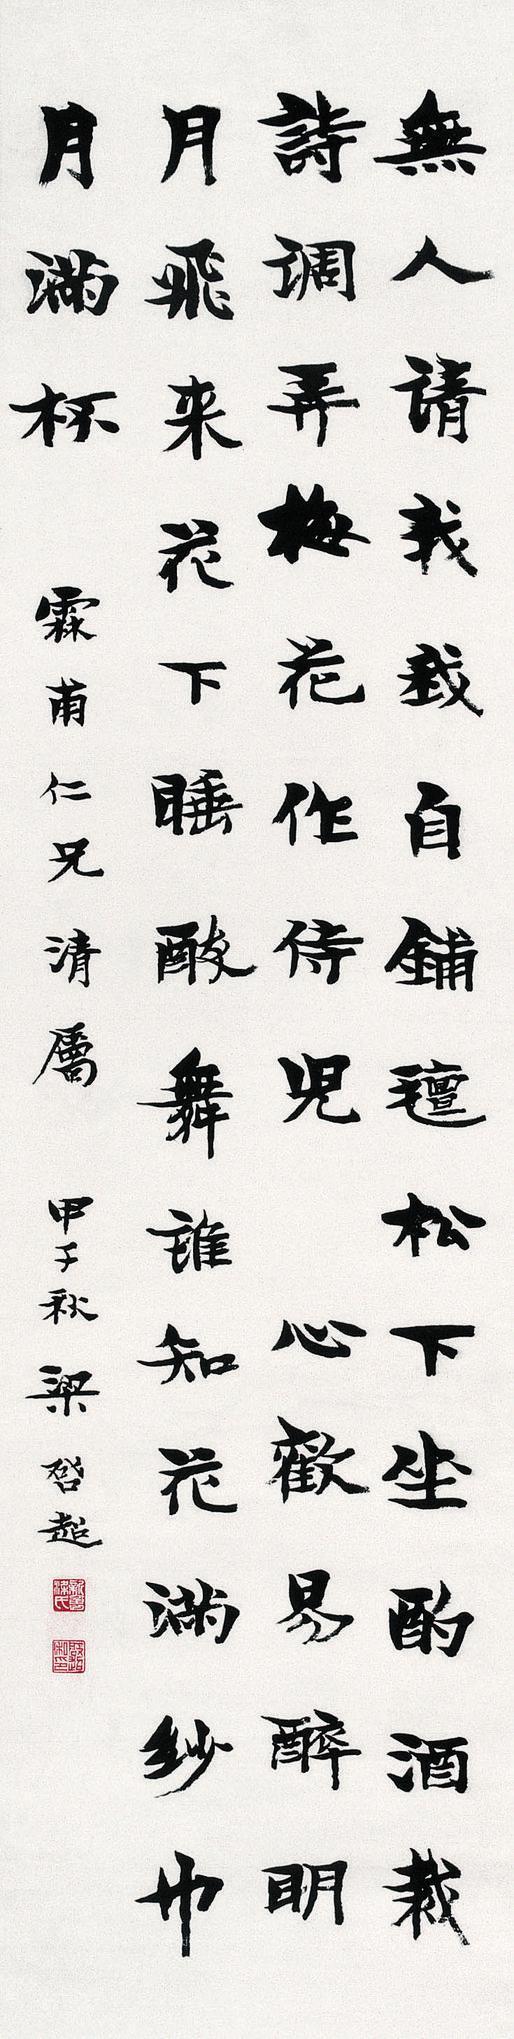 無人請我我自鋪氊松下坐酌酒裁
詩調弄梅花作侍兒 心歡易醉明
月飛来花下睡醉舞誰知花滿紗巾
月滿杯 霖甫仁兄清屬 甲子秋 梁啓超
新會梁氏
啟超私印